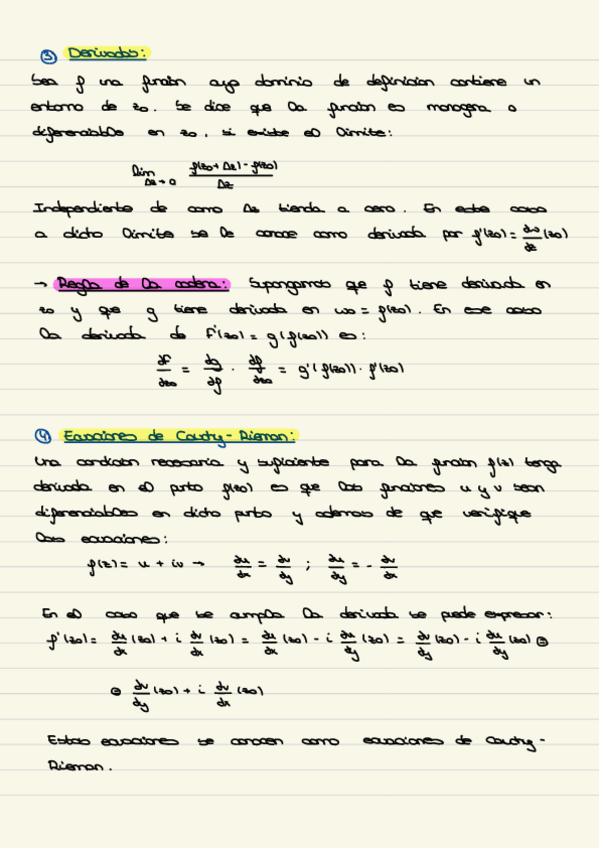 ③ Derivadas:
Sea f una función cuyo dominio de definicion contiene un
entorno de z0. Se dice que la función es monogena o
diferenciable en z0, si existe el límite:
lim Δz→0 (f(z0+Δz) - f(z0))/Δz
Independiente de como Δz tienda a cero. En este caso
a dicho límite se le conoce como derivada por f'(z0) = dw/dz (z0)
→ Regla de la cadena: Supongamos que f tiene derivada en
z0 y que g tiene derivada en w0 = f(z0). En ese caso
la derivada de F'(z0) = g(f(z0)) es:
dF/dz0 = dg/df · df/dz0 = g'(f(z0)) · f'(z0)
④ Ecuaciones de Cauchy-Rieman:
Una condicion necesaria y suficiente para la función f(z) tenga
derivada en el punto f(z0) es que las funciones u y v sean
diferenciables en dicho punto y ademas de que verifique
las ecuaciones:
f(z) = u + iv → du/dx = dv/dy ; du/dy = - dv/dx
En el caso que se cumpla la derivada se puede expresar:
f'(z0) = du/dx (z0) + i dv/dx (z0) = du/dx (z0) - i du/dy (z0) = dv/dy (z0) - i du/dy (z0) ⊜
⊜ dv/dy (z0) + i dv/dx (z0)
Estas ecuaciones se conocen como ecuaciones de Cauchy-
Rieman.